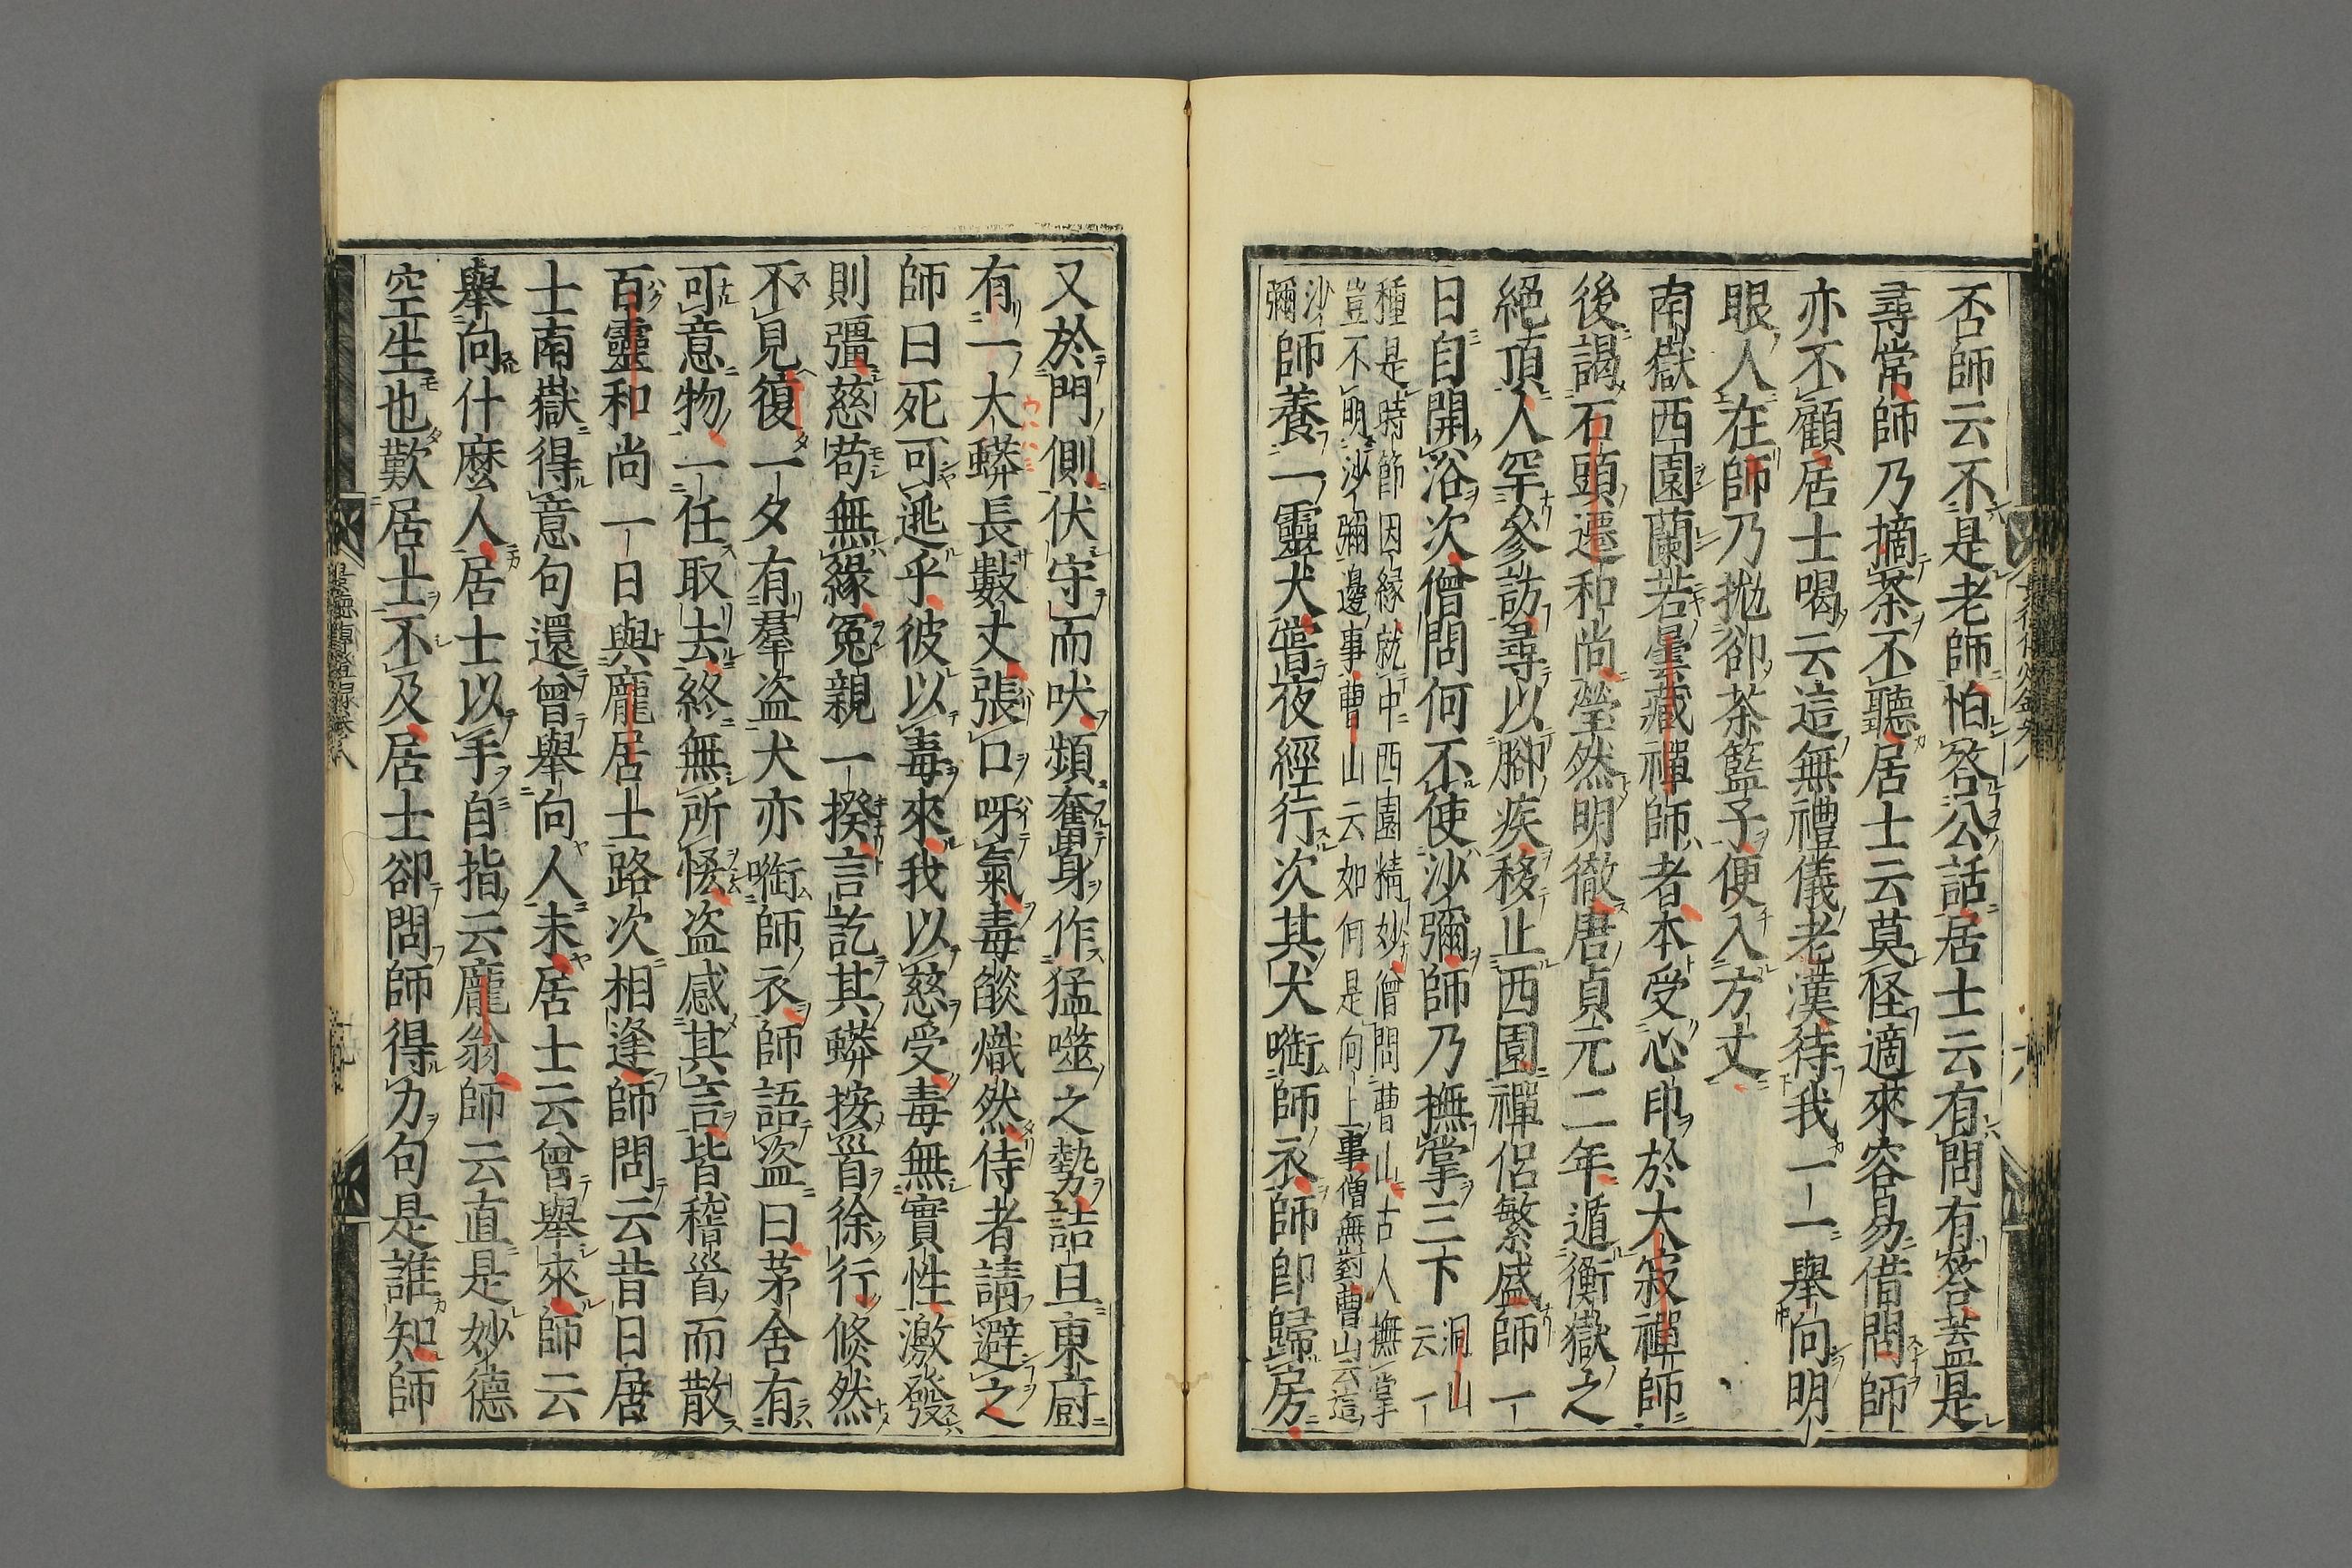 否師云不是老師怕答公話居士云有問有答葢是
尋常師乃摘茶不聽居士云莫怪適來容易借問師
亦不顧居士喝云這無禮儀老漢待我一一舉向明
眼人在師乃拋卻茶籃子便入方丈
南嶽西園蘭若曇藏禪師者本受心印於大寂禪師
後謁石頭遷和尚瑩然明徹唐貞元二年遁衡嶽之
絕頂人罕參訪尋以腳疾移止西園禪侶繁盛師一
日自開浴次僧問何不使沙彌師乃撫掌三下洞山云一
種是時節因緣就中西園精妙僧問曹山古人撫掌
豈不明沙彌邊事曹山云如何是向上事僧無對曹山云這
沙彌師養一靈犬嘗夜經行次其犬銜師衣師即歸房
又於門側伏守而吠頻奮身作猛噬之勢詰旦東廚
有一大蟒長數丈張口呀氣毒燄熾然侍者請避之
師曰死可逃乎彼以毒來我以慈受毒無實性激發
則彊慈苟無緣冤親一揆言訖其蟒按首徐行倏然
不見復一夕有羣盜犬亦銜師衣師語盜曰茅舍有
可意物一任取去終無所悋盜感其言皆稽首而散
百靈和尚一日與龐居士路次相逢師問云昔日居
士南嶽得意句還曾舉向人未居士云曾舉來師云
舉向什麼人居士以手自指云龐翁師云直是妙德
空生也歎居士不及居士卻問師得力句是誰知師